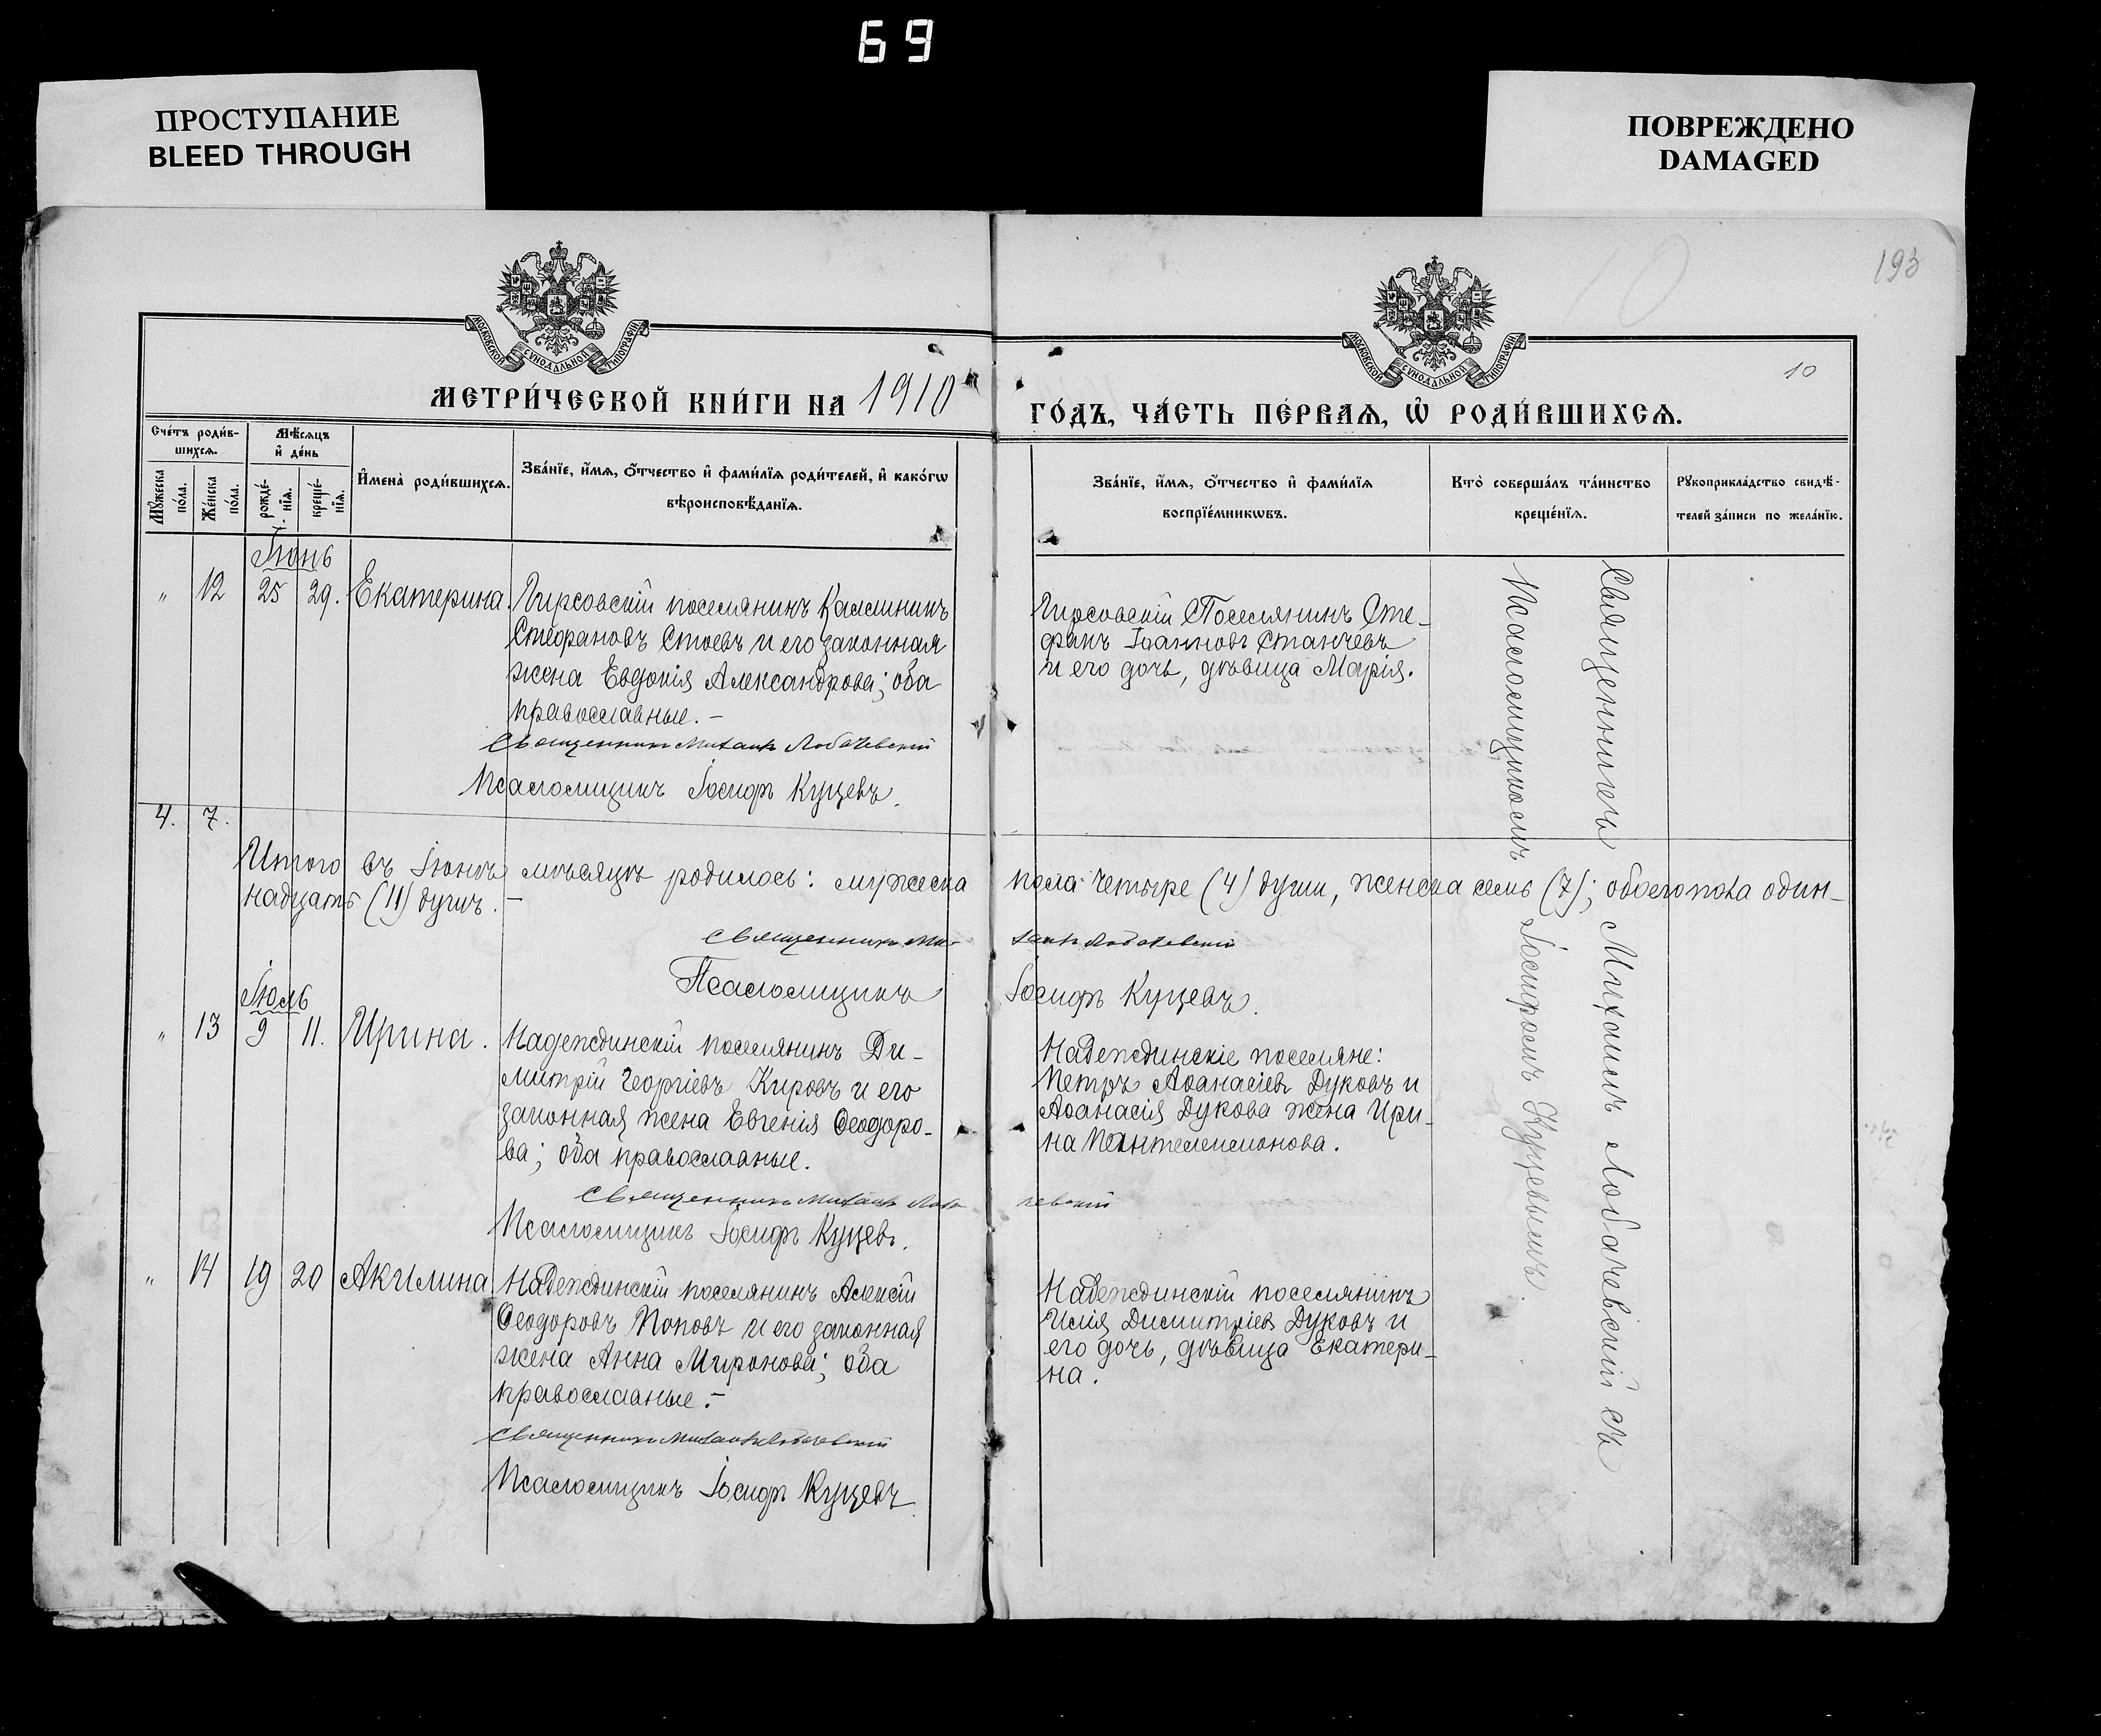 69
ПРОСТУПАНИЕ
BLEED THROUGH
ПОВРЕЖДЕНО
DAMAGED
193
10
10
МОСКОВСКОЙ СѴНОДАЛЬНОЙ ТИПОГРАФІИ
МОСКОВСКОЙ СѴНОДАЛЬНОЙ ТИПОГРАФІИ
МЕТРИ́ЧЕСКОЙ КНИ́ГИ НА 1910
ГО́ДЪ, ЧА́СТЬ ПЕ́РВАѦ, Ѡ҆ РОДИ́ВШИХСѦ.
Сче́тъ роди́в-
шихсѧ.
Мꙋ́жеска по́ла.
Же́нска по́ла.
Мѣ́сѧцъ
и҆ де́нь
рожде́-
нїѧ.
креще́-
нїѧ.
И҆мена̀ роди́вшихсѧ.
Зва́нїе, и҆́мѧ, ѻ҆́тчество и҆ фами́лїѧ роди́телей, и҆ како́гѡ
вѣроисповѣ́данїѧ.
Зва́нїе, и҆́мѧ, ѻ҆́тчество и҆ фами́лїѧ
воспрїе́мникѡвъ.
Кто̀ соверша́лъ та́инство
креще́нїѧ.
Рꙋкоприкла́дство свидѣ́-
телей за́писи по жела́нїю.
Іюнь
„ 12 25 29. Екатерина.
Гирсовскій поселянинъ Каллиникъ
Стефановъ Стоевъ и его законная
жена Евдокія Александрова; оба
православные. –
Священникъ Михаилъ Лобачевскій
Псаломщикъ Іосифъ Куцевъ.
Гирсовскій Поселянинъ Сте-
фанъ Іоанновъ Станчевъ
и его дочь, дѣвица Марія.
4. 7.
Итого въ Іюнѣ мѣсяцѣ родилось: мужеска пола четыре (4) души, женска семь (7); обоего пола один-
надцать (11) душъ. –
Священникъ Михаилъ Лобачевскій
Псаломщикъ Іосифъ Куцевъ.
Іюль
„ 13 9 11. Ирина.
Надеждинскій поселянинъ Ди-
митрій Георгіевъ Кировъ и его
законная жена Евгенія Ѳеодоро-
ва; оба православные.
Священникъ Михаилъ Лобачевскій
Псаломщикъ Іосифъ Куцевъ.
Надеждинскіе поселяне:
Петръ Аѳанасіевъ Дуковъ и
Аѳанасія Дукова жена Ири-
на Пантелеимонова.
„ 14 19 20 Акилина
Надеждинскій поселянинъ Алексій
Ѳеодоровъ Поповъ и его законная
жена Анна Миронова; оба
православные. –
Священникъ Михаилъ Лобачевскій
Псаломщикъ Іосифъ Куцевъ.
Надеждинскій поселянинъ
Илія Димитріевъ Дуковъ и
его дочь, дѣвица Екатери-
на.
Священникъ Михаилъ Лобачевскій съ
Псаломщикомъ Іосифомъ Куцевымъ.